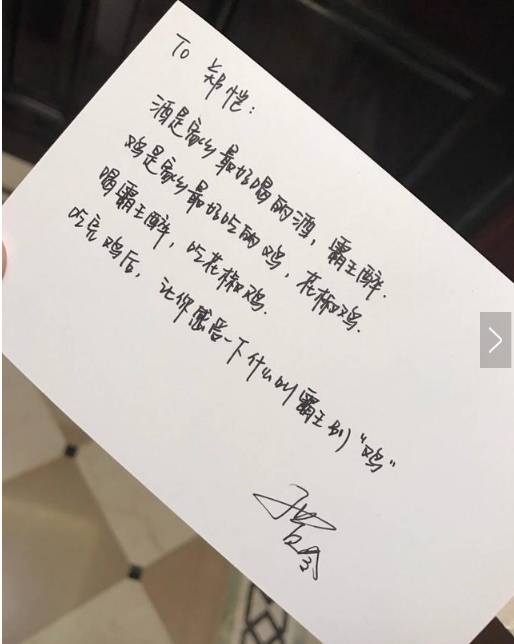 To 郑恺:
酒是家乡最好喝的酒, 霸王醉.
鸡是家乡最好吃的鸡, 花椒鸡.
喝霸王醉, 吃花椒鸡.
吃完鸡后, 让你感受一下什么叫霸王别“鸡”